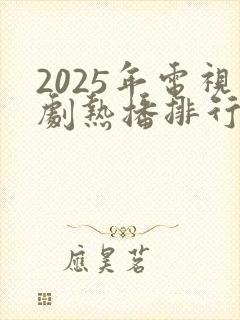 2025年電視
劇熱播排行
應昊茗